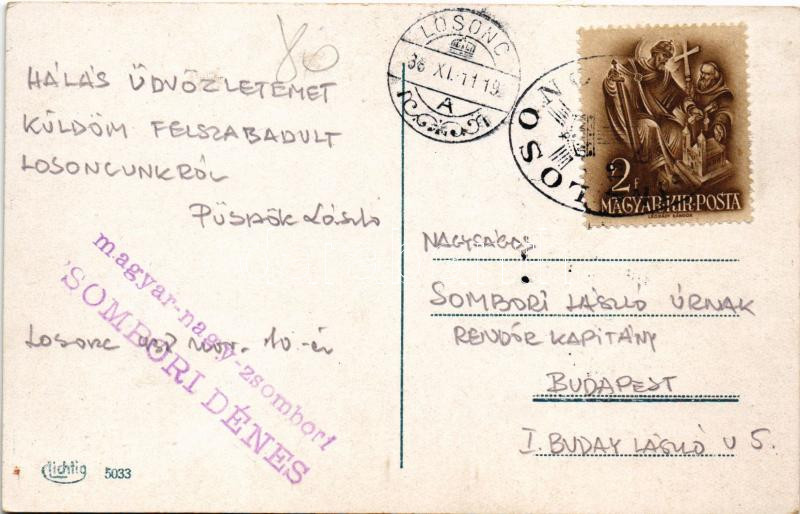 80
HÁLÁS ÜDVÖZLETEMET
KÜLDÖM FELSZABADULT
LOSONCUNKRÓL
PÜSPÖK LÁSZLÓ
magyar-nagy-zsombori
SOMBORI DÉNES
Losonc 10-én
Lichtig 5033
LOSONC
38 XI. 11 19
A
LOSO
2f
MAGYAR·KIR·POSTA
NAGYSÁGOS
SOMBORI LÁSZLÓ ÚRNAK
RENDŐR KAPITÁNY
BUDAPEST
I. BUDAY LÁSZLÓ U 5.